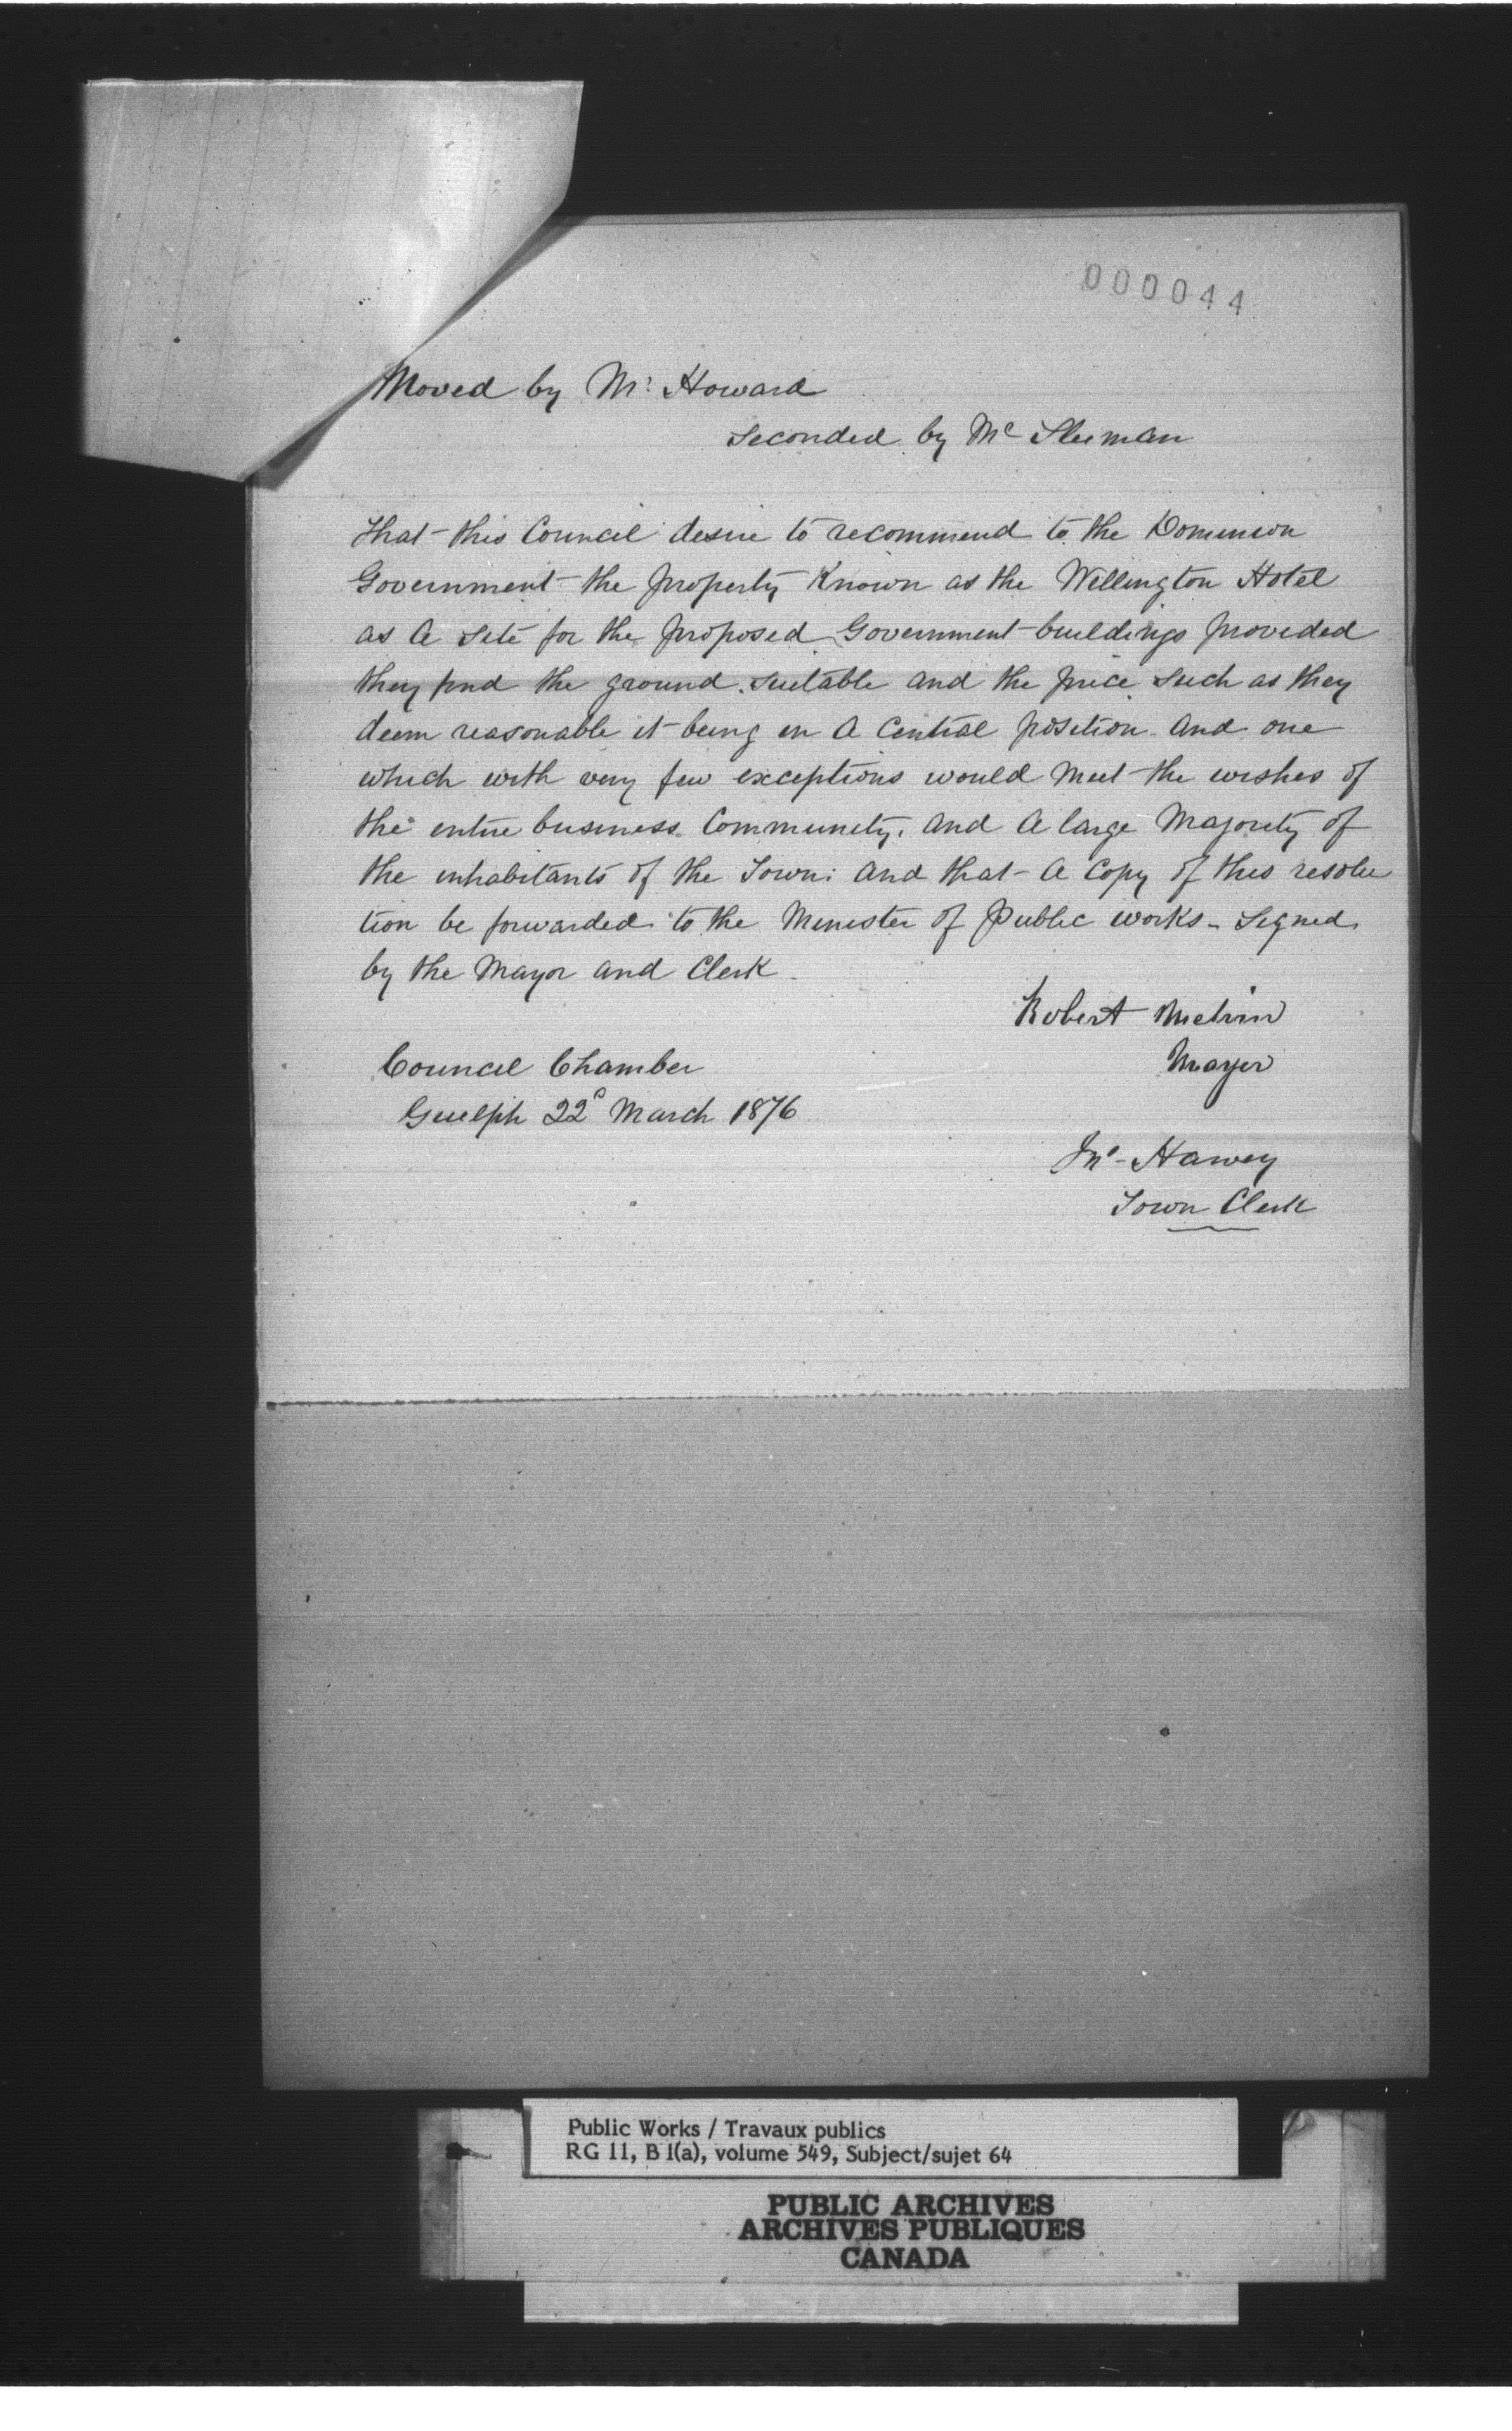 000044
Moved by Mr Howard
Seconded by Mr Sleeman
That this Council desire to recommend to the Dominion
Government the property Known as the Wellington Hotel
as a site for the proposed Government buildings provided
they find the ground suitable and the price such as they
deem reasonable it being in a Central position and one
which with very few exceptions would meet the wishes of
the entire business Community, and a large Majority of
the inhabitants of the Town: and that a Copy of this resolu
tion be forwarded to the Minister of Public works - signed
by the Mayor and Clerk
Robert Melvin
Council Chamber
Mayor
Guelph 22d March 1876
Jno Harvey
Town Clerk
Public Works / Travaux publics
RG 11, B 1(a), volume 549, Subject/sujet 64
PUBLIC ARCHIVES
ARCHIVES PUBLIQUES
CANADA